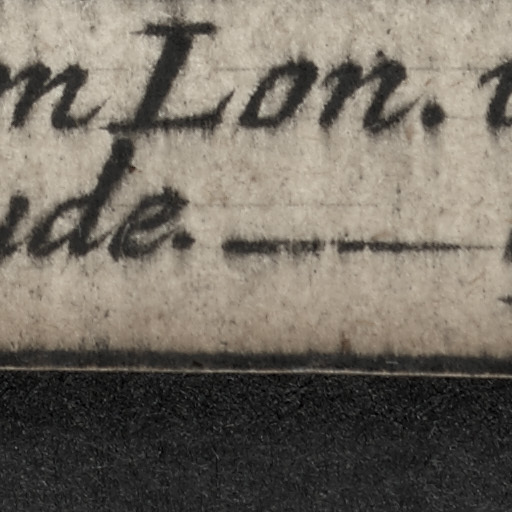 m Lon.
ude. —